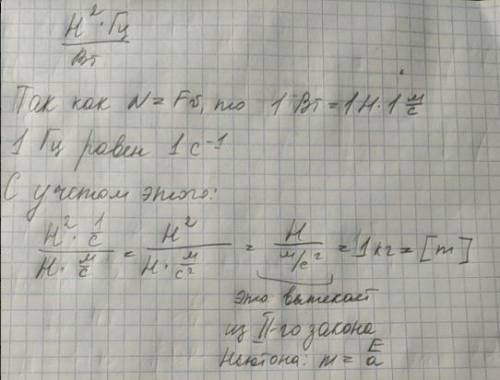 Н²·Гц
Вт
Так как N = Fv, то 1 Вт = 1 Н·1 м/с
1 Гц равен 1 с⁻¹
С учетом этого:
(Н²·1/с)/(Н·м/с) = Н²/(Н·м/с²) = Н/(м/с²) = 1 кг = [m]
это вытекает
из II-го закона
Ньютона: m = F/a